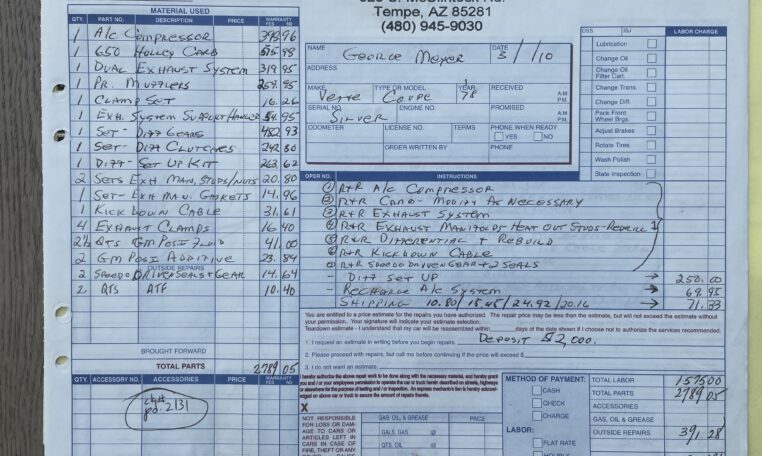 Tempe, AZ 85281
(480) 945-9030
MATERIAL USED
QTY. PART NO. DESCRIPTION PRICE WARRANTY YES NO
1 A/C Compressor 398 96
1 650 Holley Carb 98
1 Dual Exhaust System 319 95
1 Pr. Mufflers 259.95
1 Clamp Set 16.26
1 Exh. System Support Hanger 95
1 Set- Diff Gears 93
1 Set- Diff Clutches 242 80
1 Diff- Set up Kit 263.62
2 Sets Exh Man. Studs/Nuts 20.80
1 Set- Exh Man. Gaskets 14.96
1 Kick Down Cable 31.61
4 Exhaust Clamps 16 40
2½ Qts GM Posi Fluid 41.00
2 GM Posi Additive 23.84
OUTSIDE REPAIRS
2 Speedo Driven Seals + Gear 14.64
2 Qts ATF 10.40
BROUGHT FORWARD
TOTAL PARTS 2789 05
QTY. ACCESSORY NO. ACCESSORIES PRICE WARRANTY YES NO
pd. 2131
NAME George Meyer DATE 3/ /10
ADDRESS
MAKE Vette TYPE OR MODEL Coupe YEAR 78 RECEIVED A.M. P.M.
SERIAL NO. Silver ENGINE NO. PROMISED A.M. P.M.
ODOMETER LICENSE NO. TERMS PHONE WHEN READY
YES NO
ORDER WRITTEN BY PHONE
LABOR CHARGE
Lubrication
Change Oil
Change Oil Filter Cart.
Change Trans.
Change Diff.
Pack Front Wheel Brgs.
Adjust Brakes
Rotate Tires
Wash Polish
State Inspection
OPER NO. INSTRUCTIONS
① R+R A/C Compressor
② R+R Carb - Modify As Necessary
③ R+R Exhaust System
④ R+R Exhaust Manifolds Heat Out Studs-
⑤ R&R Differential + Rebuild
⑥ R+R Kickdown Cable
⑦ R+R Speedo Driven Gear + 2 Seals
- Diff Set Up → 250.00
- Recharge A/C System → 69.95
Shipping 10.80/15.45/24.92/20.16 → 71.33
You are entitled to a price estimate for the repairs you have authorized. The repair price may be less than the estimate, but will not exceed the estimate
without your permission. Your signature will indicate your estimate selection.
Teardown estimate - I understand that my car will be reassembled within days of the date shown if I choose not to authorize the services recommended.
1. I request an estimate in writing before you begin repairs. Deposit $2,000.
2. Please proceed with repairs, but call me before continuing if the price will exceed $
3. I do not want an estimate.
I hereby authorize the above repair work to be done along with the necessary material, and hereby grant
you and / or your employees permission to operate the car or truck herein described on streets, highways
or elsewhere for the purpose of testing and / or inspection. An express mechanic's lien is hereby acknowledged
on above car or truck to secure the amount of repairs thereto.
X
NOT RESPONSIBLE
FOR LOSS OR DAMAGE
TO CARS OR
ARTICLES LEFT IN
CARS IN CASE OF
FIRE, THEFT OR ANY
GAS, OIL & GREASE PRICE
GALS. GAS @
QTS. OIL @
METHOD OF PAYMENT:
CASH
CHECK
CHARGE
LABOR:
FLAT RATE
HOURLY
TOTAL LABOR 1575 00
TOTAL PARTS 2789 05
ACCESSORIES
GAS, OIL & GREASE
OUTSIDE REPAIRS 391 28